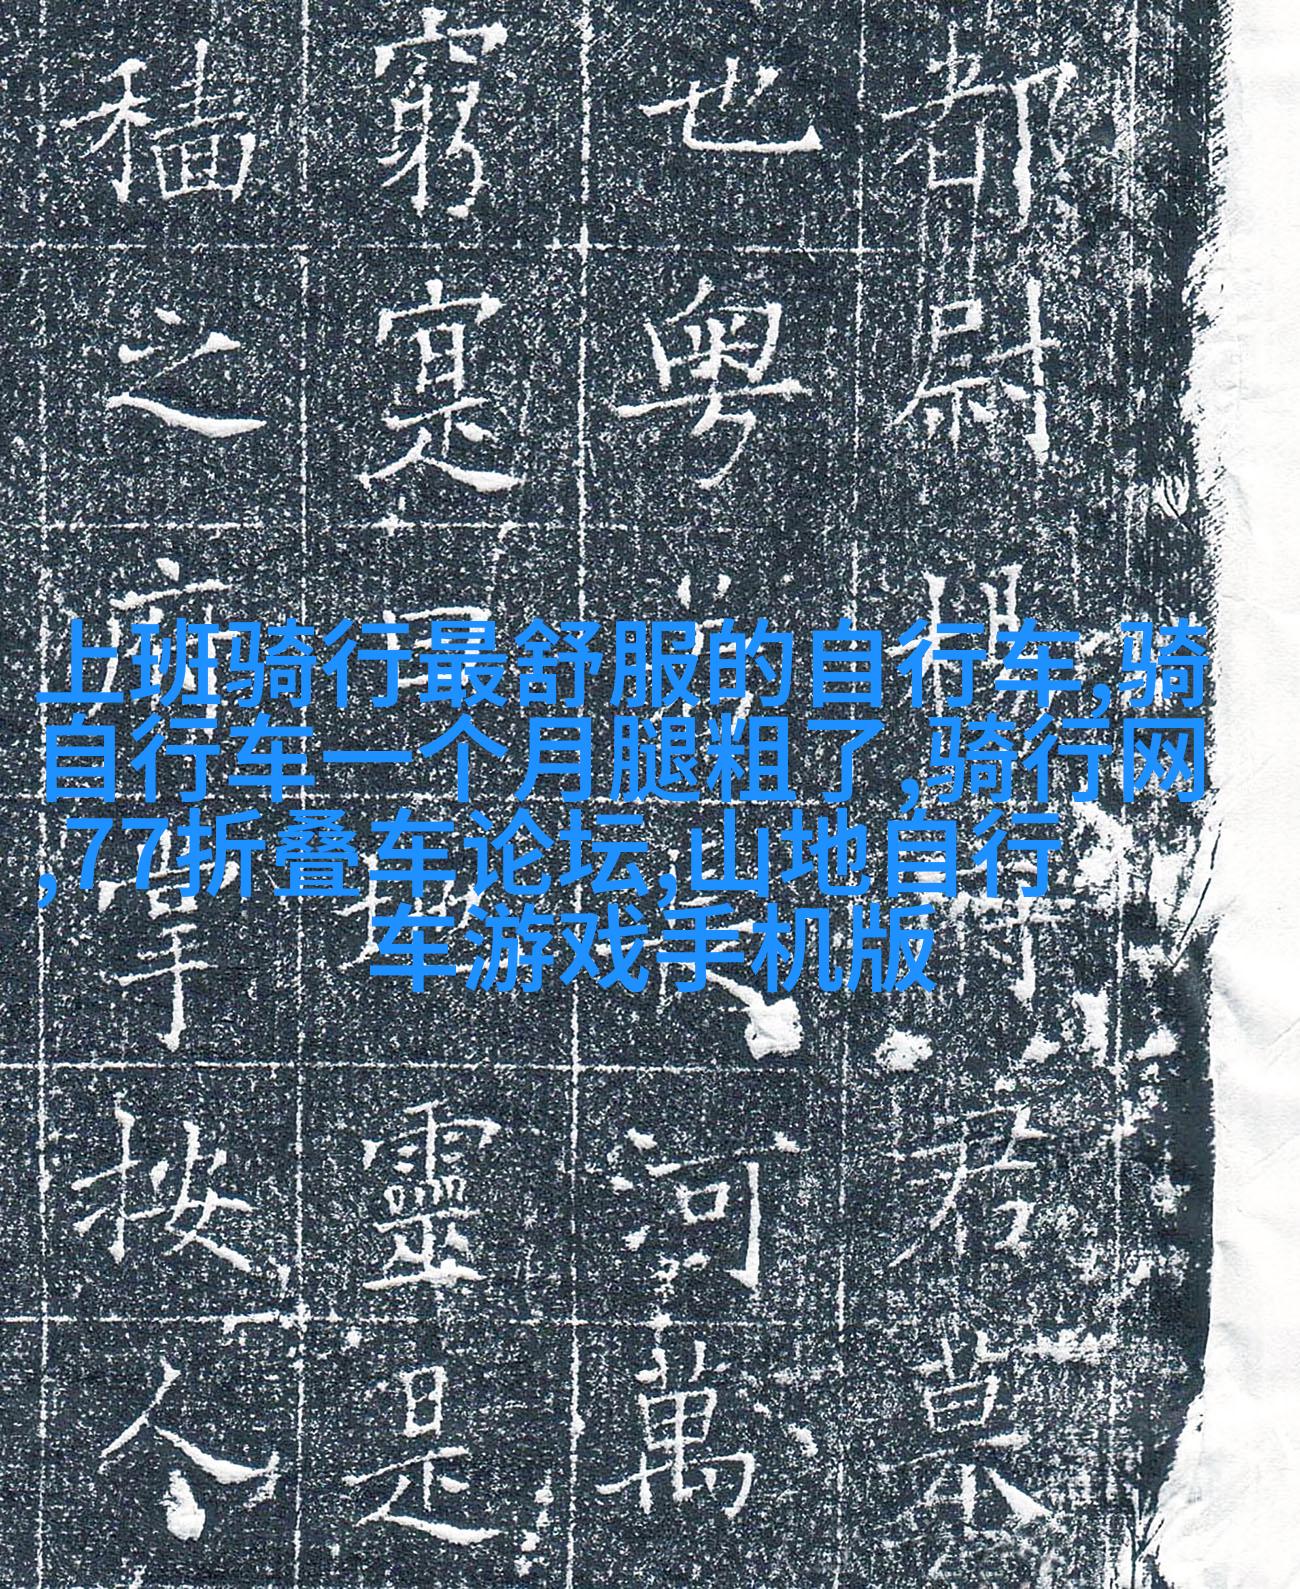 都尉
也粵河萬
窮寔靈是
穡之按人
上班骑行最舒服的自行车,骑
自行车一个月腿粗了,骑行网
,77折叠车论坛,山地自行
车游戏手机版